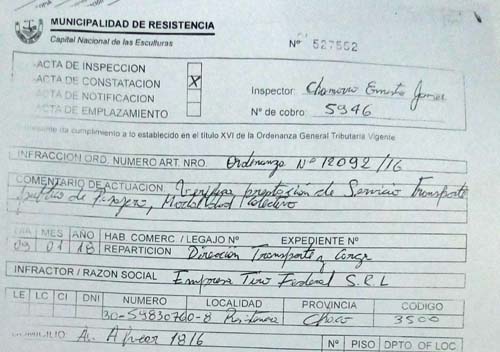 MUNICIPALIDAD DE RESISTENCIA
Capital Nacional de las Esculturas
Nº 527552
ACTA DE INSPECCION
ACTA DE CONSTATACION X
ACTA DE NOTIFICACION
ACTA DE EMPLAZAMIENTO
Inspector: Chamorro Ernesto
Nº de cobro: 5946
presente da cumplimiento a lo establecido en el título XVI de la Ordenanza General Tributaria Vigente
INFRACCION ORD. NUMERO ART. NRO. Ordenanza Nº 12092/16
COMENTARIO DE ACTUACION: Verificar prestación de Servicio Transporte
público de Pasajero, Modalidad Colectivo
DIA MES AÑO HAB. COMERC / LEGAJO Nº EXPEDIENTE Nº
09 01 18 REPARTICION Direccion Transporte y Carga
INFRACTOR / RAZON SOCIAL Empresa Tiro Federal S.R.L
LE LC CI DNI NUMERO LOCALIDAD PROVINCIA CODIGO
30-59830760-8 Resistencia Chaco 3500
DOMICILIO Av. Alvear 1816 Nº PISO DPTO OF LOC